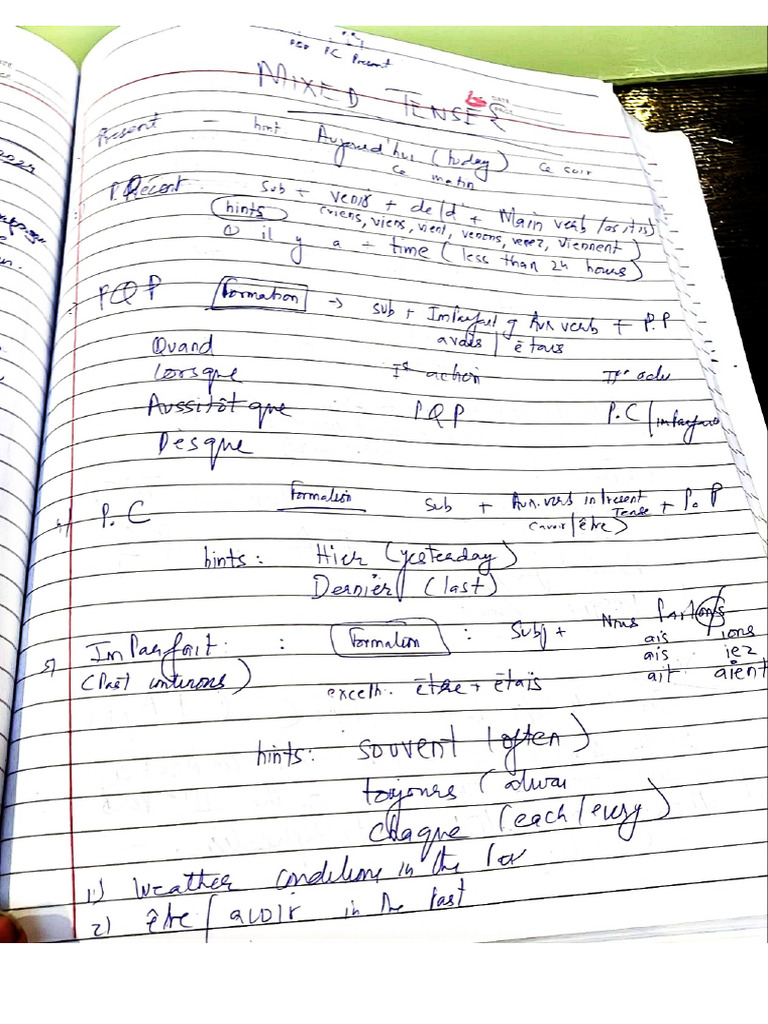 PQP PC Present
MIXED TENSES
Present - hint Aujourd'hui (today) ce soir
ce matin
P. Récent: sub + venir + de/d' + Main verb (as it is)
hints (viens, viens, vient, venons, venez, viennent)
① il y a + time (less than 24 hours)
PQP Formation → sub + Imparfait of Aux verb + P.P
avais / étais
Quand
Lorsque Ist action IInd
Aussitôt que PQP P.C / imparfait
Dès que
4) P.C Formation Sub + Aux. verb in Present Tense + P.P
(avoir/être)
hints: Hier (yesterday)
Dernier (last)
5) Imparfait : Formation : Subj + Nous Parlons
(Past continous) ais ions
ais iez
ait aient
être + étais
hints: souvent (often)
toujours (alwa
chaque (each/every)
1) Weather conditions in the
2) être / avoir in the Past